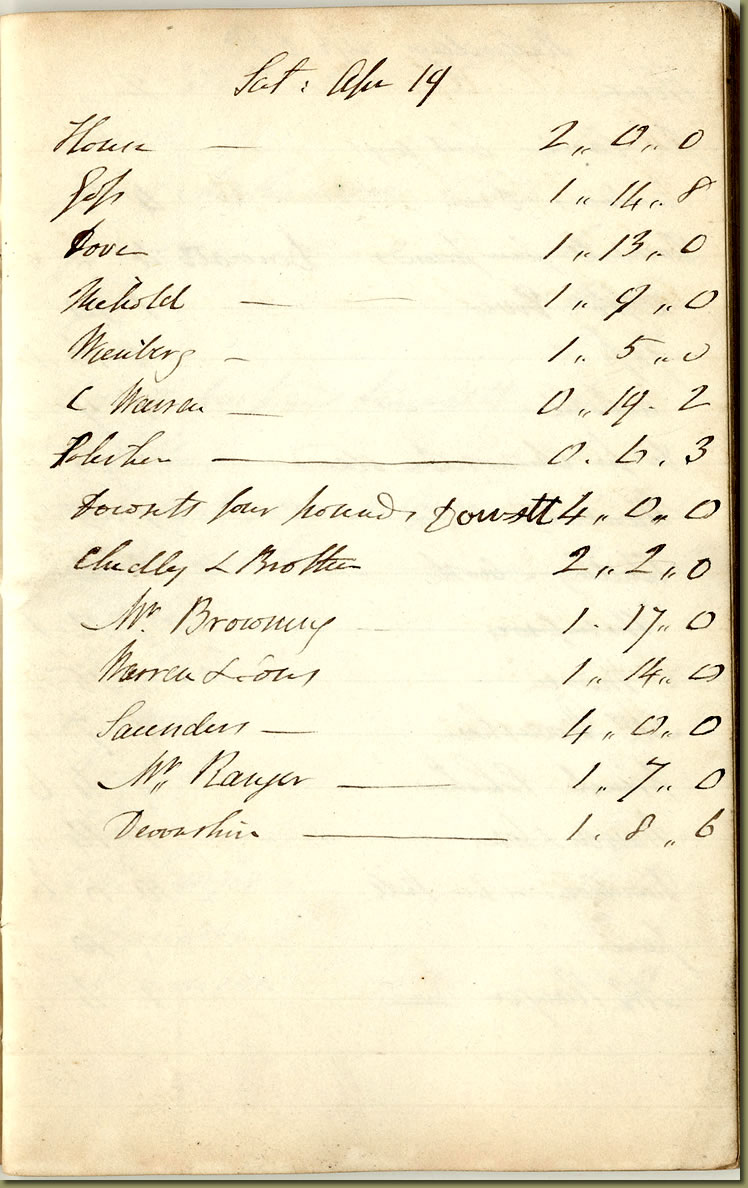 Sat: Apr 19
House — 2 " 0 " 0
Goss 1 " 14 " 8
Dove 1 " 13 " 0
Niebold — — 1 " 9 " 0
Weinberg — 1 " 5 " 0
C Warren — 0 " 19 - 2
——— 0 . 6 . 3
Dowsett four pounds Dowsett 4 " 0 " 0
Chudley & Brother 2 " 2 " 0
Mr. Browning — 1 - 17 " 0
Warren & Sons 1 " 14 " 0
Saunders — 4 " 0 " 0
Mr. Ranger — 1 " 7 " 0
Devonshire ——— 1 . 8 " 6